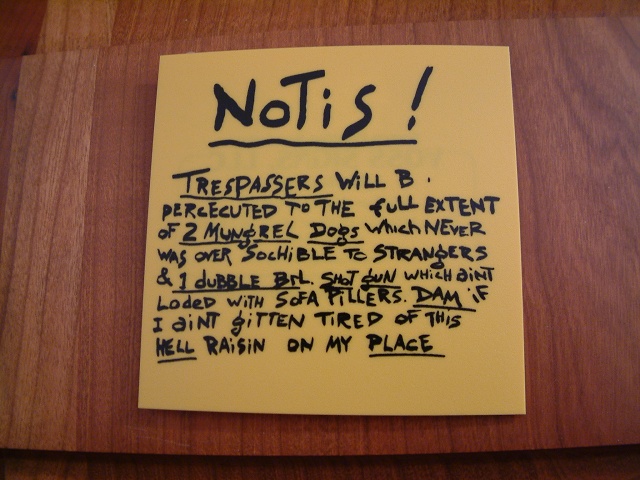 NoTis!
TRESPASSERS WILL B.
PERCECUTED TO THE fuLL EXTENT
OF 2 MUNGREL DOgS which NEVER
WAS OVER SOCHIBLE TO STRANGERS
& 1 dUBBLE BrL. SHOT GUN WHICH aiNT
LODED WITH SOFA PILLERS. DAM iF
I aiNT gITTEN TIRED OF THIS
HELL RAISIN ON MY PLACE